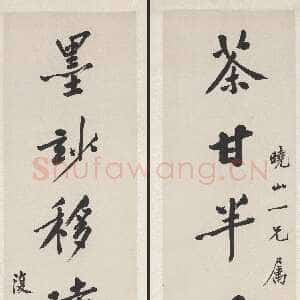 茶甘半
曉山一兄屬
墨
移
復
Shufawang.CN